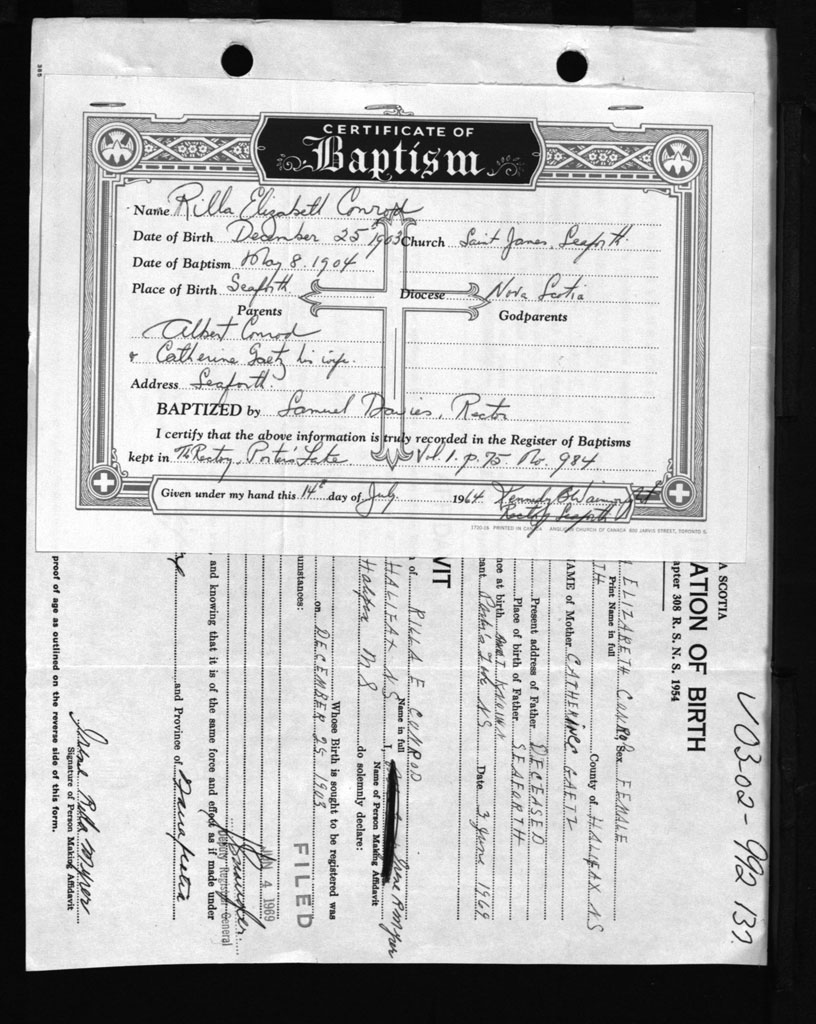 CERTIFICATE OF
Baptism
Name Rilla Elizabeth Conrod
Date of Birth December 25th 1903 Church Saint James, Seaforth.
Date of Baptism May 8. 1904
Place of Birth Seaforth Diocese Nova Scotia
Parents Godparents
Albert Conrod
& Catherine Gaetz his wife.
Address Seaforth.
BAPTIZED by Samuel Davies, Rector
I certify that the above information is truly recorded in the Register of Baptisms
kept in The Rectory, Porter's Lake Vol. 1. p. 75. No. 984
Given under my hand this 14th day of July 1964 Wainwright
Rector, Seaforth
1720-16 PRINTED IN CANADA ANGLICAN CHURCH OF CANADA 600 JARVIS STREET, TORONTO 5,
V03-02-992 137.
A SCOTIA
ATION OF BIRTH
apter 308 R. S. N. S. 1954
ELIZABETH CONROD Sex FEMALE
Print Name in full
TH County of HALIFAX N S
AME of Mother CATHERINE GAETZ
Present address of Father DECEASED
Place of birth of Father SEAFORTH
nce at birth NOT KNOWN
cant N S Date 3 June 1969
VIT
n of RILLA E CONROD
Name in full
HALIFAX N S I,
Name of Person Making Affidavit
Halifax N S do solemnly declare:
Whose Birth is sought to be registered was
on DECEMBER 25 - 1903
umstances:
FILED
JUN 4 1969
Deputy Registrar General
, and knowing that it is of the same force and effect as if made under
and Province of Nova Scotia
Signature of Person Making Affidavit
proof of age as outlined on the reverse side of this form.